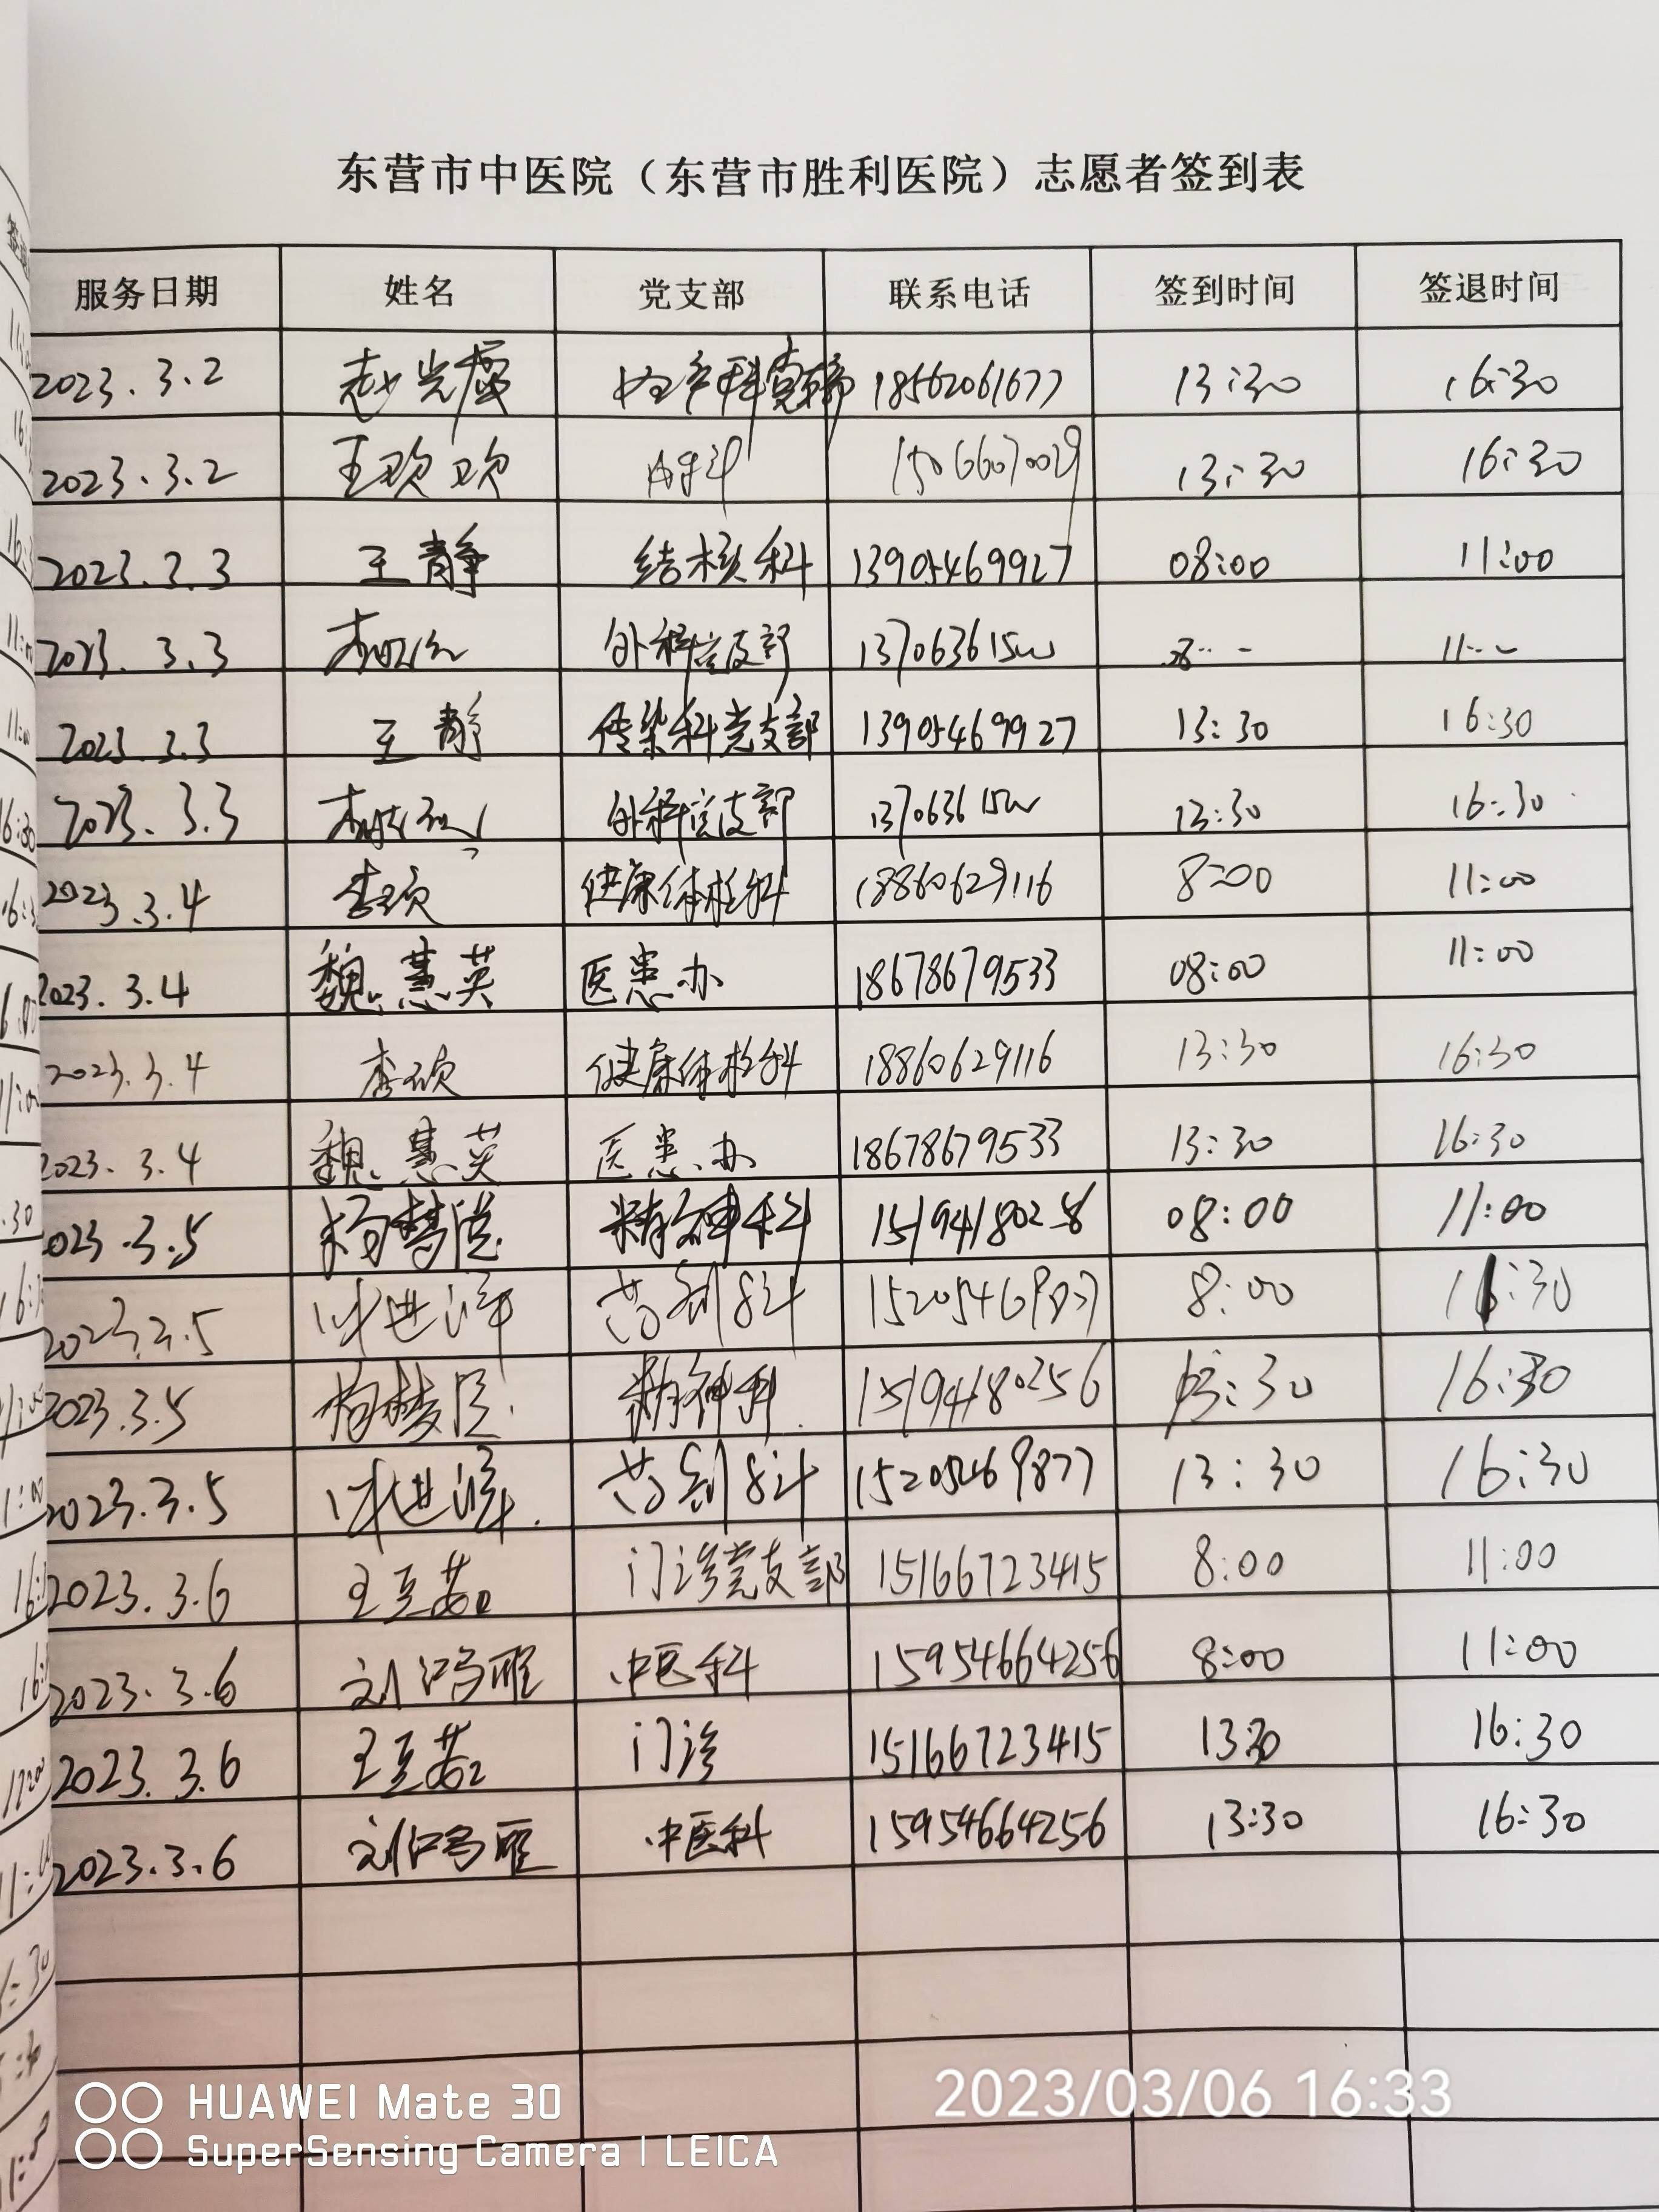 东营市中医院（东营市胜利医院）志愿者签到表
服务日期 姓名 党支部 联系电话 签到时间 签退时间
2023.3.2 赵光 18562061677 13:30 16:30
2023.3.2 王欢欢 15066607009 13:30 16:30
2023.3.3 王静 结核科 13905469927 08:00 11:00
2023.3.3 外科党支部
2023.3.3 王静 传染科党支部 13905469927 13:30 16:30
2023.3.3 外科党支部 13:30 16:30
2023.3.4 李硕 健康体检科 18860629116 8:00 11:00
2023.3.4 魏慧英 医患办 18678679533 08:00 11:00
2023.3.4 李硕 健康体检科 18860629116 13:30 16:30
2023.3.4 魏慧英 医患办 18678679533 13:30 16:30
2023.3.5 杨梦 精神科 15194180256 08:00 11:00
2023.3.5 药剂科 15205469877 8:00
2023.3.5 杨梦 精神科 15194180256 13:30 16:30
2023.3.5 药剂科 15205469877 13:30 16:30
2023.3.6 王豆茹 门诊党支部 15166723415 8:00 11:00
2023.3.6 刘鸿雁 中医科 15954664256 8:00 11:00
2023.3.6 王豆茹 门诊 15166723415 1330 16:30
2023.3.6 刘鸿雁 中医科 15954664256 13:30 16:30
HUAWEI Mate 30
SuperSensing Camera | LEICA
2023/03/06 16:33